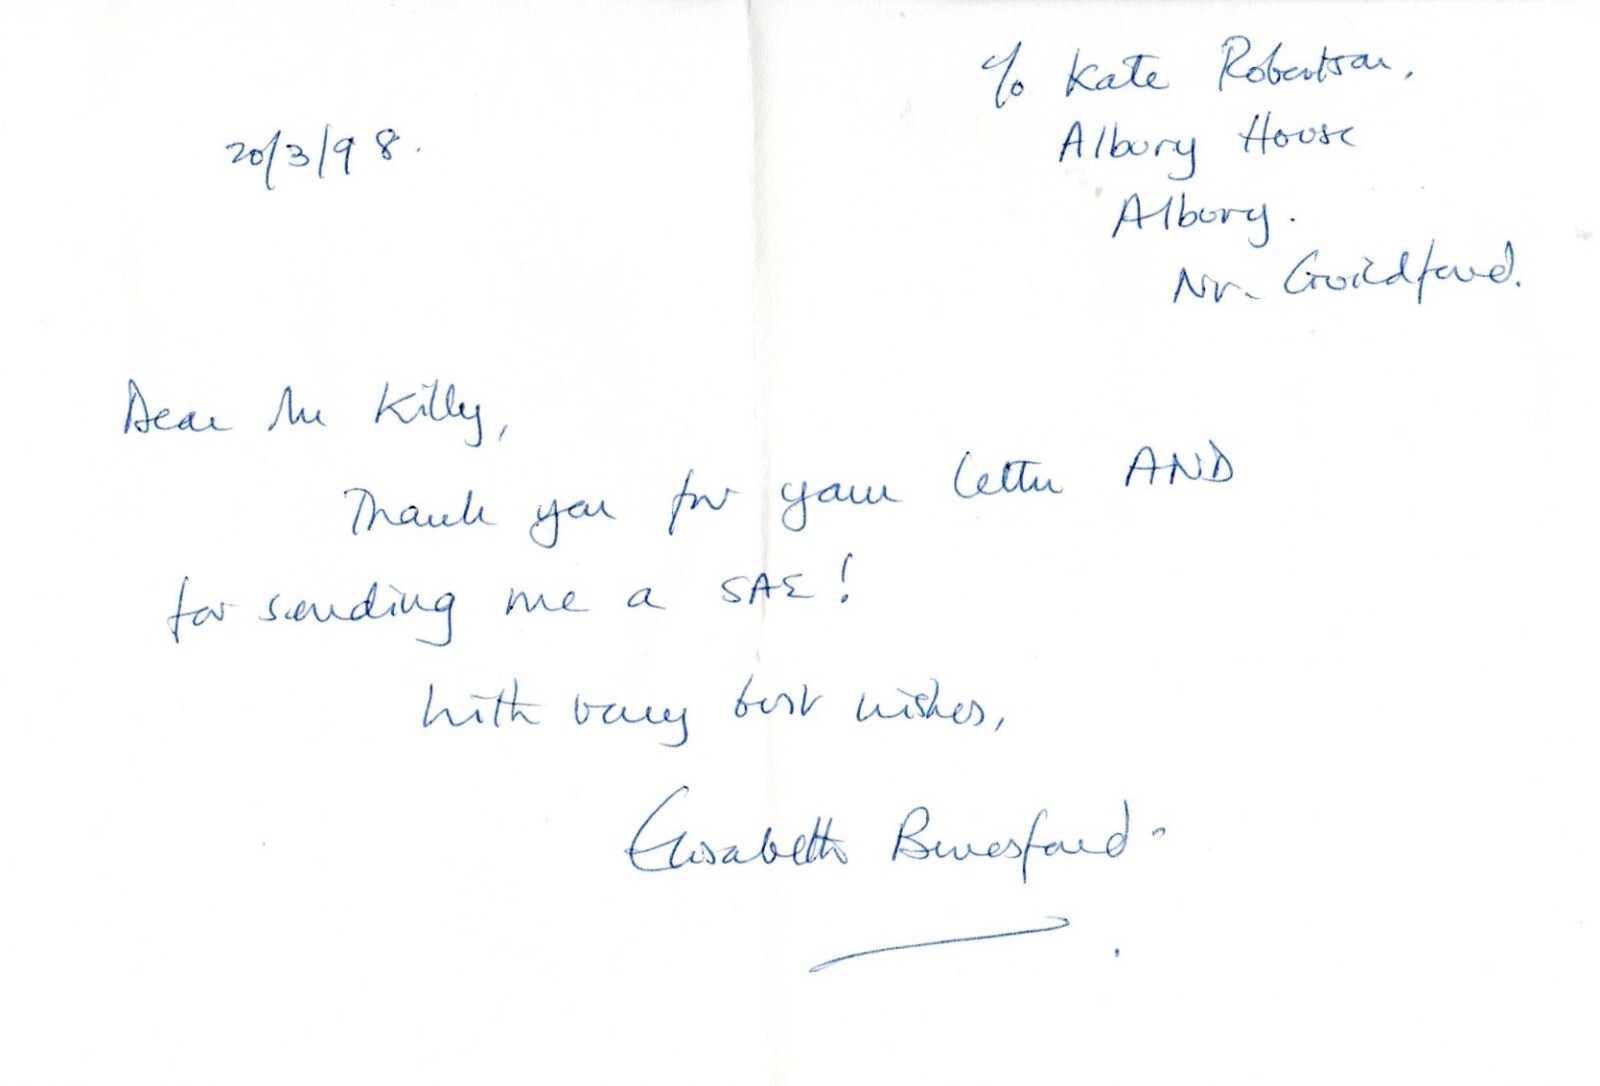 c/o Kate Robertson,
20/3/98.
Albury House
Albury.
Nr. Guildford.
Dear Mr Killy,
Thank you for your letter AND
for sending me a SAE!
With very best wishes,
Elisabeth Beresford